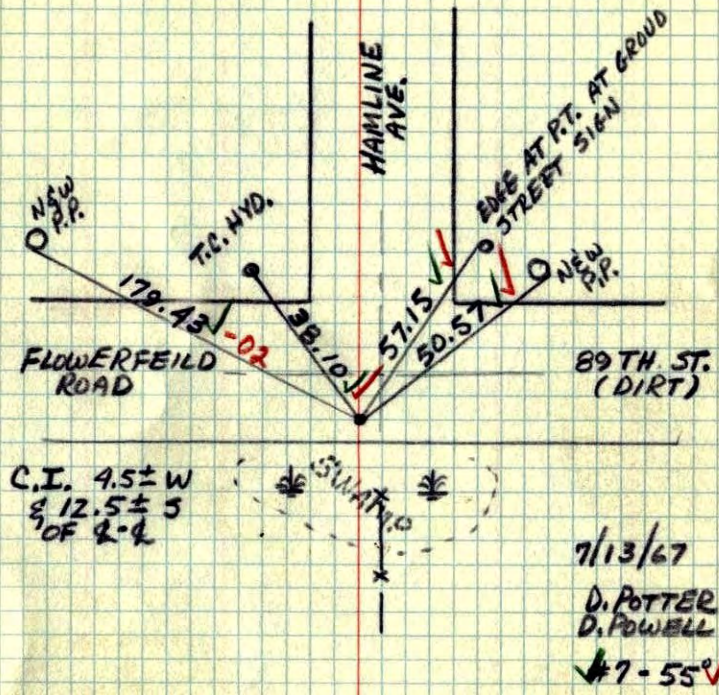 HAMLINE
AVE.
EDGE AT P.T. AT GROUD
STREET SIGN
N&W
P.P.
T.C. HYD.
N&W
P.P.
179.43
-02
38.10
57.15
50.57
FLOWERFEILD
ROAD
89TH. ST.
(DIRT)
C.I. 4.5± W
& 12.5± S
OF ℄-℄
SWAMP
7/13/67
D. POTTER
D. POWELL
#7-55°